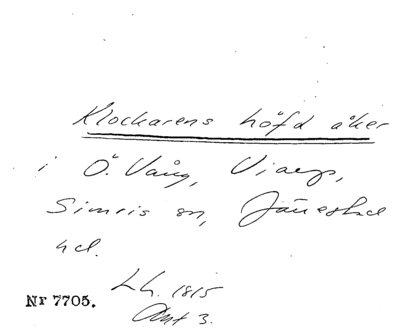 Klockarens höfd åker
i Ö. Vång, Viarp,
Simris sn, Järrestad
hd.
Lh. 1815
Akt 3.
Nr 7705.